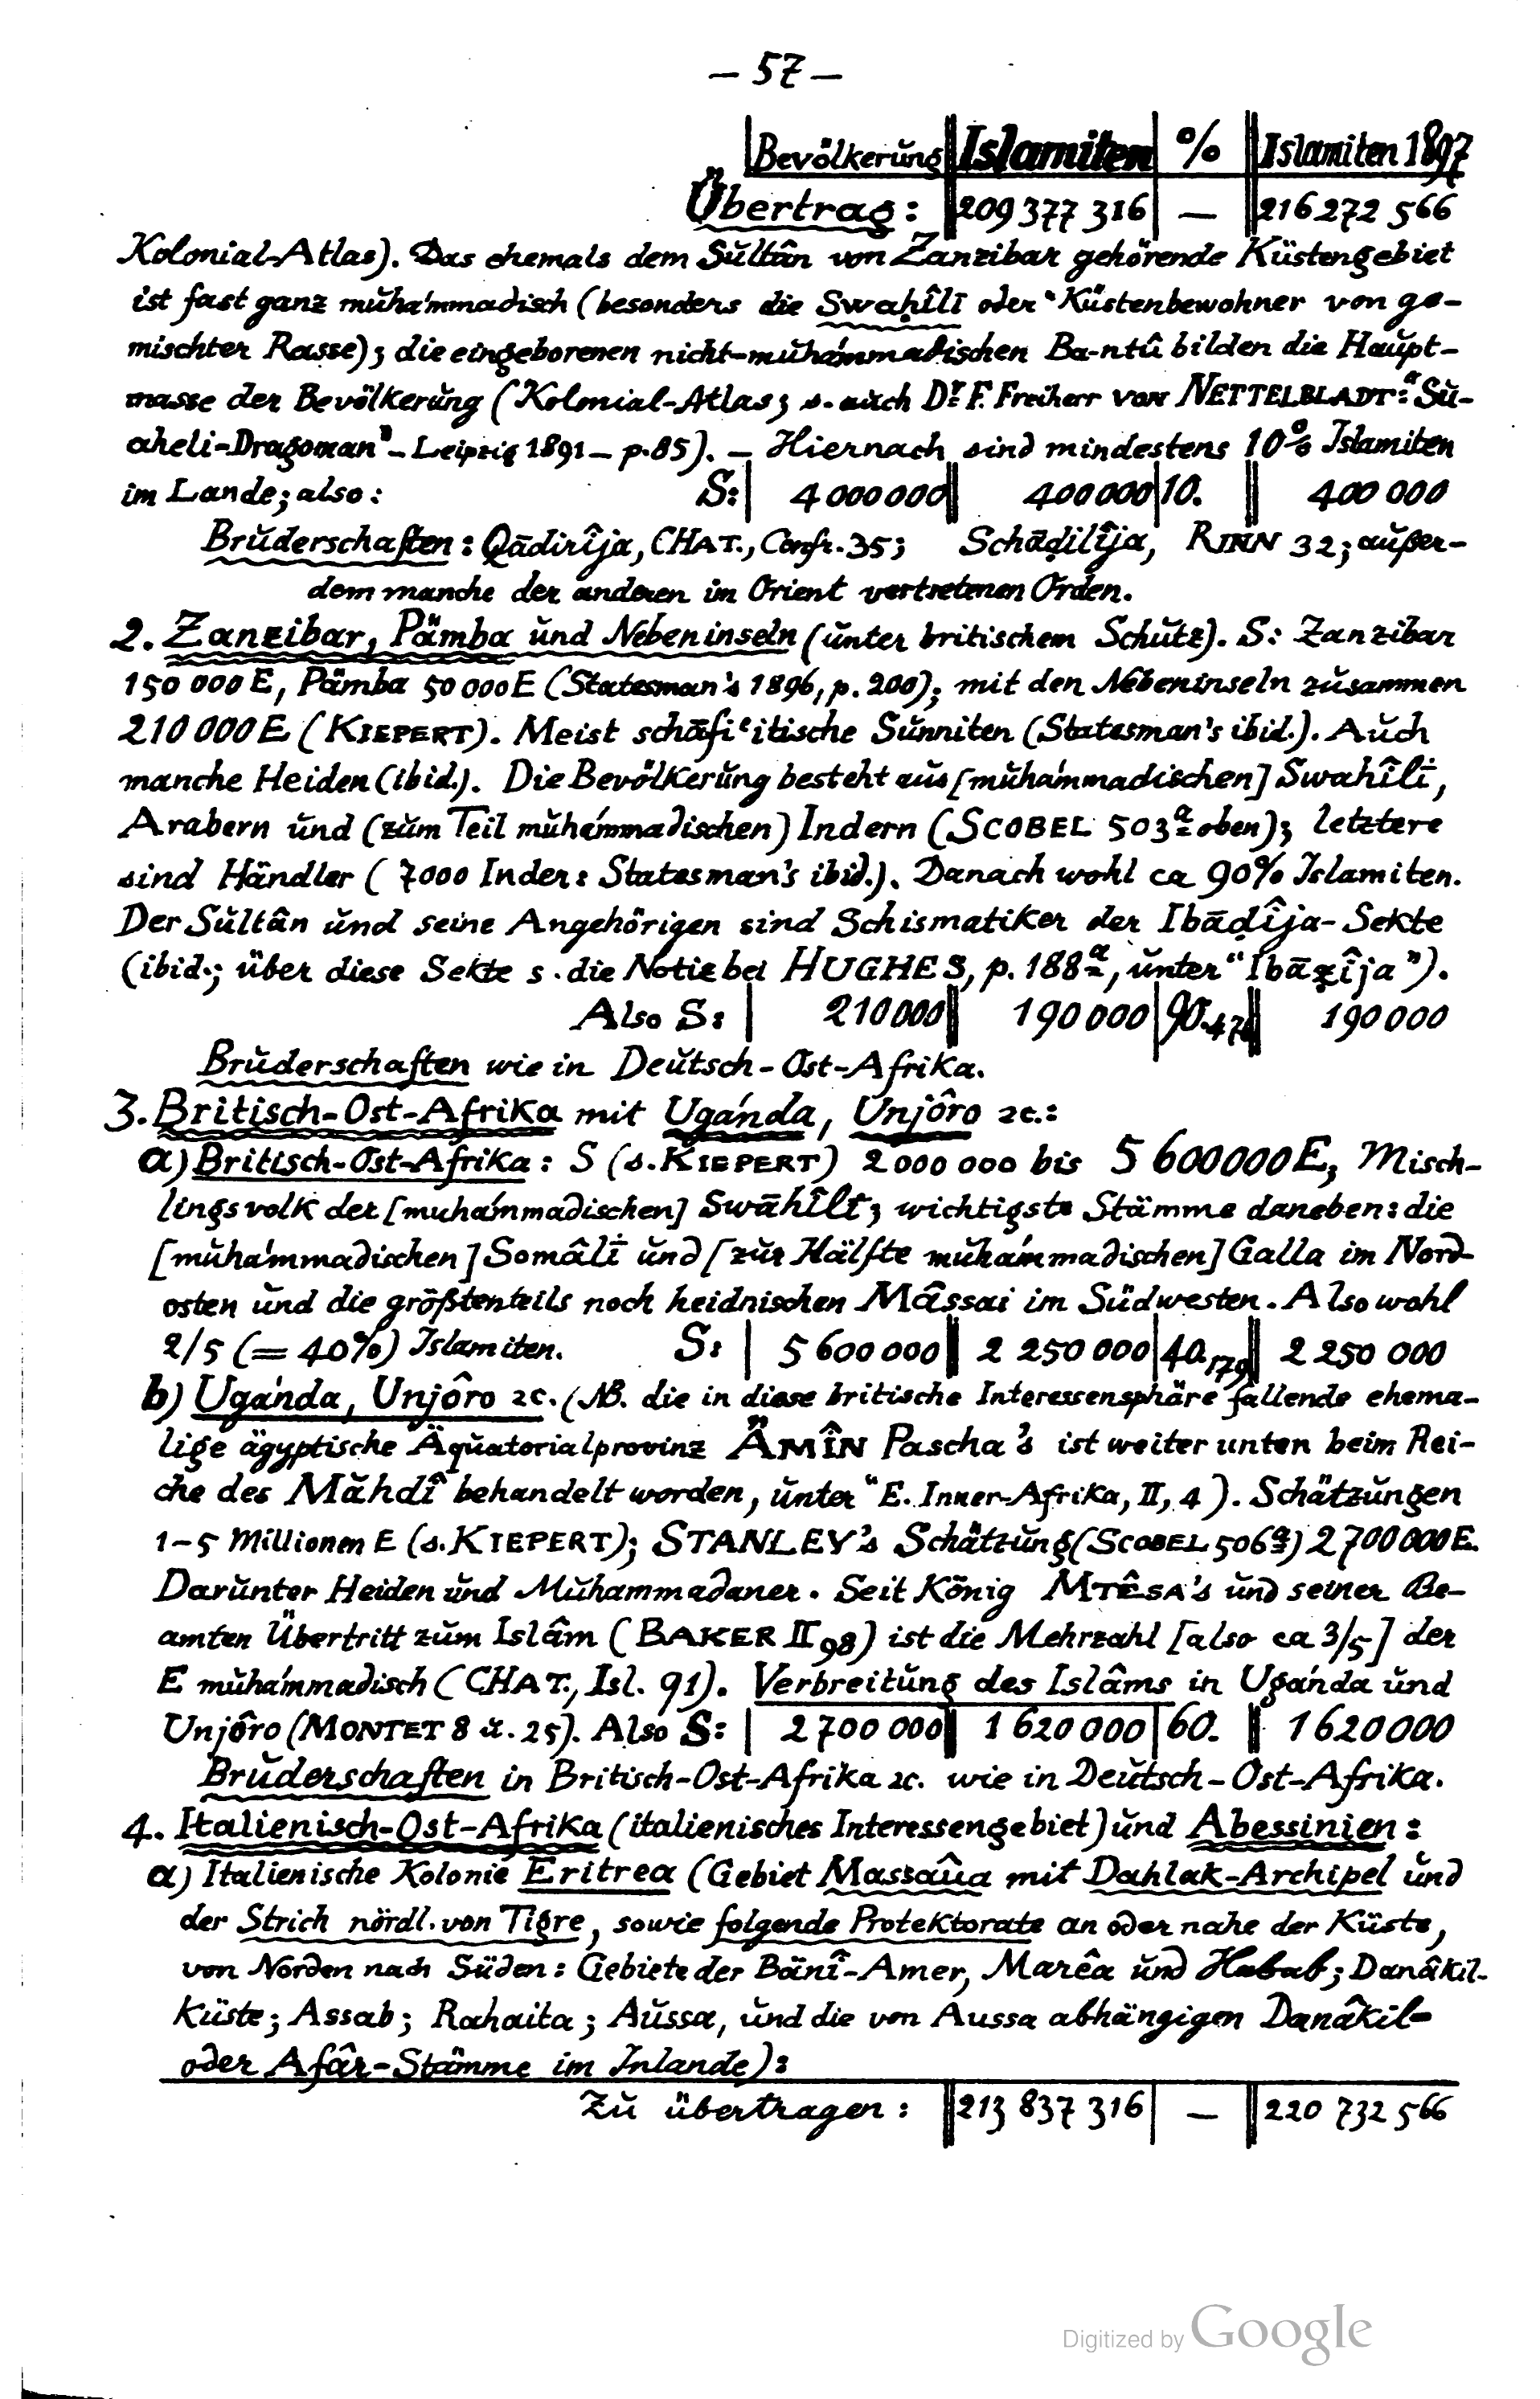 — 57 —
Bevölkerŭng Islamiten % Islamiten 1897
Übertrag: 209 377 316 — 216 272 566
Kolonial-Atlas). Das ehemals dem Sŭltân von Zanzibar gehörende Küstengebiet
ist fast ganz mŭhámmadisch (besonders die Swaḥîlî oder "Küstenbewohner von ge-
mischter Rasse); die eingeborenen nicht-mŭhámmadischen Ba-ntû bilden die Haŭpt-
masse der Bevölkerŭng (Kolonial-Atlas; s. aŭch Dr. F. Freiherr von NETTELBLADT: "Sŭ-
aheli-Dragoman" – Leipzig 1891 – p. 85). – Hiernach sind mindestens 10% Islamiten
im Lande; also: S: 4 000 000 400 000 10. 400 000
Brŭderschaften: Qādirîja, CHAT., Confr. 35; Schāḏilîja, RINN 32; aŭßer-
dem manche der anderen im Orient vertretenen Orden.
2. Zanzibar, Pämba ŭnd Nebeninseln (ŭnter britischem Schŭtz). S: Zanzibar
150 000 E, Pämba 50 000 E (Statesman's 1896, p. 200); mit den Nebeninseln zŭsammen
210 000 E (KIEPERT). Meist schāfi'itische Sŭnniten (Statesman's ibid.). Aŭch
manche Heiden (ibid.). Die Bevölkerŭng besteht aŭs [mŭhámmadischen] Swahîlî,
Arabern ŭnd (zŭm Teil mŭhámmadischen) Indern (SCOBEL 503a oben); letztere
sind Händler (7000 Inder: Statesman's ibid.). Danach wohl ca 90% Islamiten.
Der Sŭltân ŭnd seine Angehörigen sind Schismatiker der Ibāḍîja-Sekte
(ibid.; über diese Sekte s. die Notiz bei HUGHES, p. 188a, ŭnter "Ibāẓîja").
Also S: 210 000 190 000 90.476 190 000
Brŭderschaften wie in Deŭtsch-Ost-Afrika.
3. Britisch-Ost-Afrika mit Ugánda, Unjôro 2c.:
a) Britisch-Ost-Afrika: S (s. KIEPERT) 2 000 000 bis 5 600 000 E; Misch-
lingsvolk der [muhámmadischen] Swāhîlî; wichtigste Stämme daneben: die
[mŭhámmadischen] Somâlî ŭnd [zŭr Hälfte mŭhámmadischen] Galla im Nord-
osten ŭnd die größtenteils noch heidnischen Mâssai im Südwesten. Also wohl
2/5 (= 40%) Islamiten. S: 5 600 000 2 250 000 40.179 2 250 000
b) Ugánda, Unjôro 2c. (NB. die in diese britische Interessensphäre fallende ehema-
lige ägyptische Äqŭatorialprovinz ÄMÎN Pascha's ist weiter unten beim Rei-
che des Măhdî behandelt worden, ŭnter "E. Inner-Afrika, II, 4). Schätzŭngen
1–5 Millionen E (s. KIEPERT); STANLEY's Schätzŭng (SCOBEL 506a) 2 700 000 E.
Darŭnter Heiden ŭnd Mŭhammadaner. Seit König MTÊSA's ŭnd seiner Be-
amten Übertritt zŭm Islâm (BAKER II 98) ist die Mehrzahl [also ca 3/5] der
E mŭhámmadisch (CHAT., Isl. 91). Verbreitŭng des Islâms in Ugánda ŭnd
Unjôro (MONTET 8 ŭ. 25). Also S: 2 700 000 1 620 000 60. 1 620 000
Brŭderschaften in Britisch-Ost-Afrika 2c. wie in Deŭtsch-Ost-Afrika.
4. Italienisch-Ost-Afrika (italienisches Interessengebiet) ŭnd Abessinien:
a) Italienische Kolonie Eritrea (Gebiet Massaûa mit Dahlak-Archipel ŭnd
der Strich nördl. von Tigre, sowie folgende Protektorate an oder nahe der Küste,
von Norden nach Süden: Gebiete der Bänî-Amer, Marêa ŭnd Habab; Danâkil-
Küste; Assab; Rahaita; Aŭssa, ŭnd die von Aussa abhängigen Danâkil-
oder Afâr-Stämme im Inlande):
Zŭ übertragen: 213 837 316 — 220 732 566
Digitized by Google